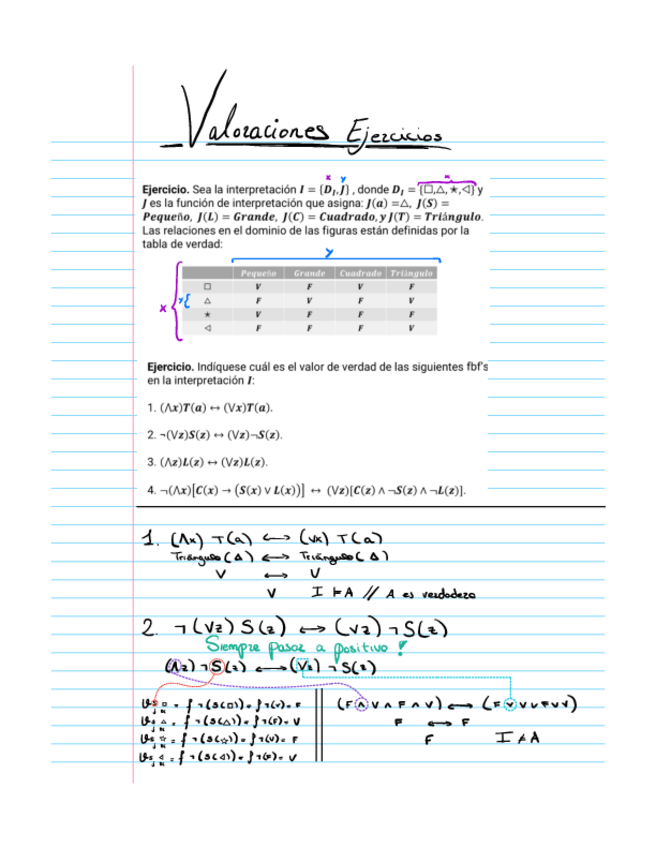 Valoraciones Ejercicios
x y x
Ejercicio. Sea la interpretación I = {D_I, J}, donde D_I = {□,△,★,◁} y
J es la función de interpretación que asigna: J(a) = △, J(S) =
Pequeño, J(L) = Grande, J(C) = Cuadrado, y J(T) = Triángulo.
Las relaciones en el dominio de las figuras están definidas por la
tabla de verdad:
y
Pequeño Grande Cuadrado Triángulo
□ V F V F
x y { △ F V F V
★ V F F F
◁ F F F V
Ejercicio. Indíquese cuál es el valor de verdad de las siguientes fbf's
en la interpretación I:
1. (Λx)T(a) ↔ (Vx)T(a).
2. ¬(Vz)S(z) ↔ (Vz)¬S(z).
3. (Λz)L(z) ↔ (Vz)L(z).
4. ¬(Λx)[C(x) → (S(x) ∨ L(x))] ↔ (Vz)[C(z) ∧ ¬S(z) ∧ ¬L(z)].
1. (Λx) T(a) ↔ (Vx) T(a)
Triángulo(△) ↔ Triángulo(△)
V ↔ V
V I ⊨ A // A es verdadera
2. ¬(Vz) S(z) ↔ (Vz) ¬S(z)
Siempre pasar a positivo!
(Λz) ¬S(z) ↔ (Vz) ¬S(z)
(F ∧ V ∧ F ∧ V) ↔ (F ∨ V ∨ F ∨ V)
F ↔ F
F I ≠ A